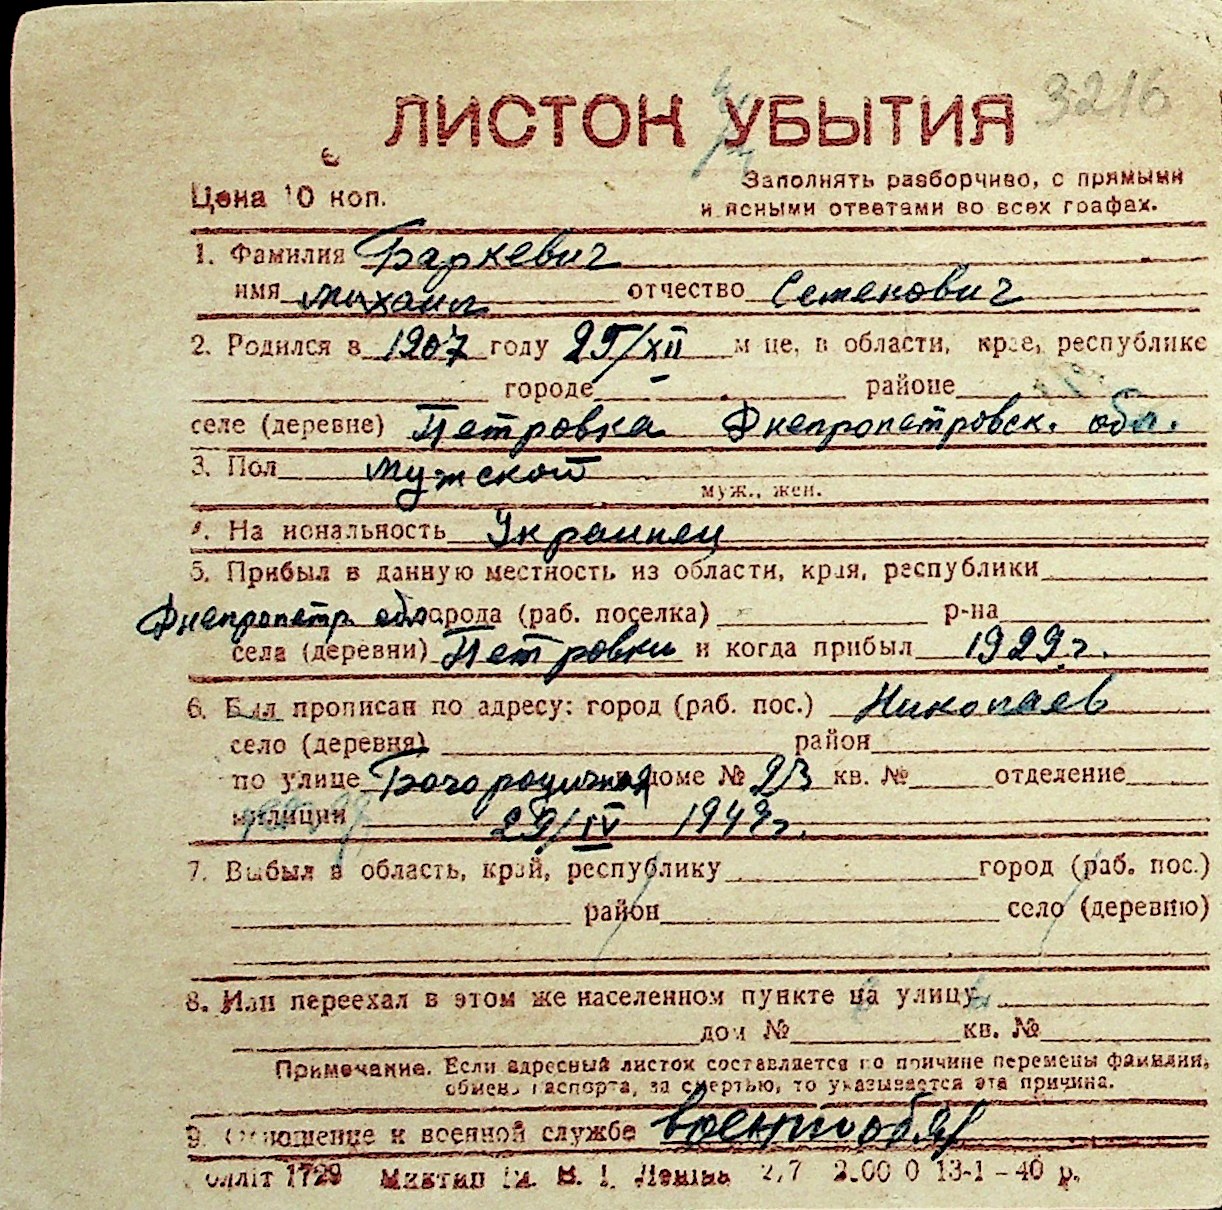 3216
ЛИСТОК УБЫТИЯ
Цена 10 коп.
Заполнять разборчиво, с прямыми
и ясными ответами во всех графах.
1. Фамилия Баркевич
имя Михаил отчество Семенович
2. Родился в 1907 году 25/XII м-це, в области, крае, республике
городе – районе
селе (деревне) Петровка Днепропетровск. обл.
3. Пол мужской
муж., жен.
4. Национальность Украинец
5. Прибыл в данную местность из области, края, республики
Днепропетр. обл. города (раб. поселка) р-на
села (деревни) Петровки и когда прибыл 1929 г.
6. Был прописан по адресу: город (раб. пос.) Николаев
село (деревня) район
по улице Богородичная доме № 23 кв. № отделение
милиции 29/IV 194 г.
7. Выбыл в область, край, республику город (раб. пос.)
район село (деревню)
8. Или переехал в этом же населенном пункте на улицу
дом № кв. №
Примечание. Если адресный листок составляется по причине перемены фамилии,
обмена паспорта, за смертью, то указывается эта причина.
9. Отношение к военной службе военнообяз
олліт 1729 Миктип ім. В. І. Леніна 2,7 2.00 0 13-1-40 р.